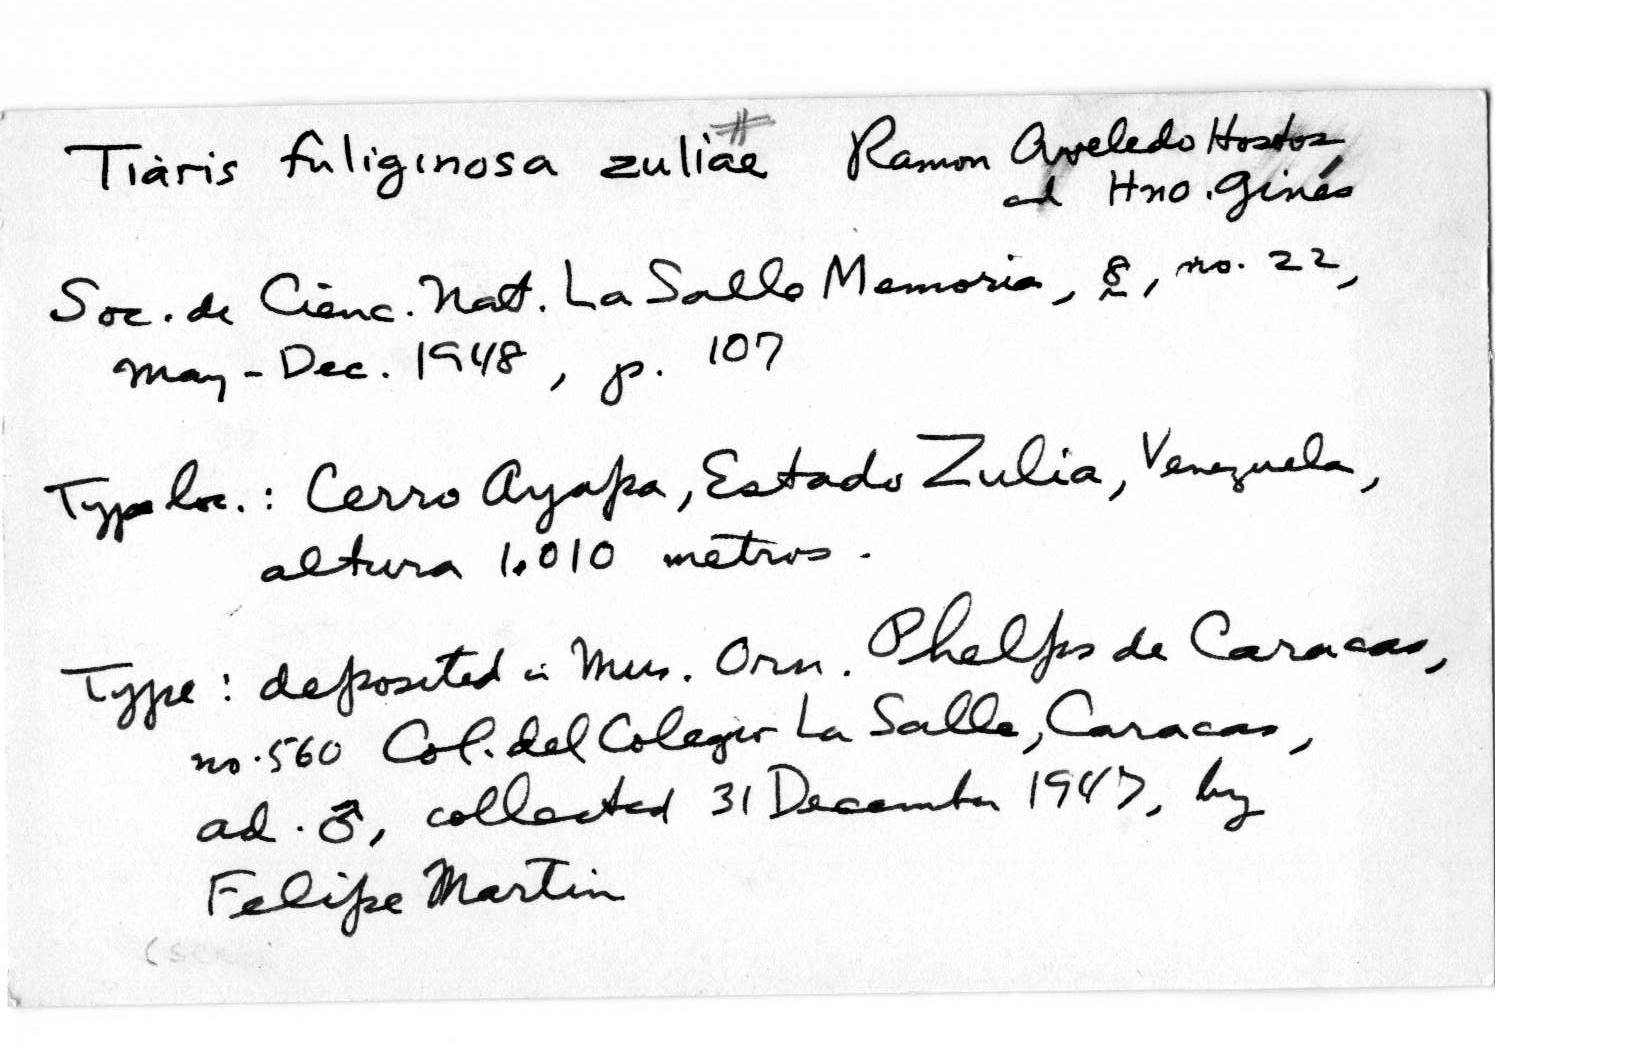 Tiaris fuliginosa zuliae # Ramon Aveledo Hostos
and Hno. Ginés
Soc. de Cienc. Nat. La Salle Memoria, 8, no. 22,
May-Dec. 1948, p. 107
Type loc.: Cerro Ayapa, Estado Zulia, Venezuela,
altura 1.010 metros.
Type: deposited in Mus. Orn. Phelps de Caracas,
no. 560 Col. del Colegio La Salle, Caracas,
ad. ♂, collected 31 December 1947, by
Felipe Martin